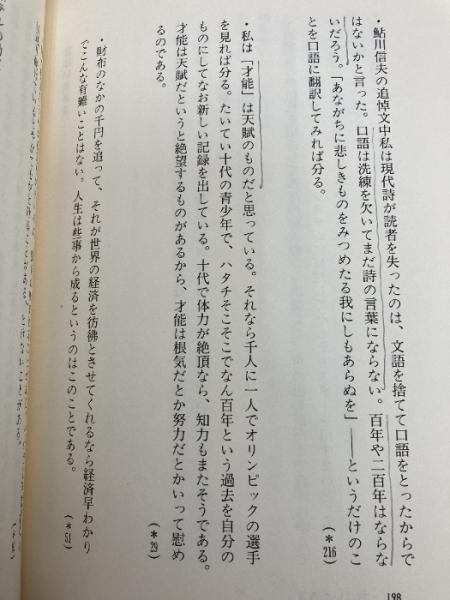 ・鮎川信夫の追悼文中私は現代詩が読者を失ったのは、文語を捨てて口語をとったからで
はないかと言った。口語は洗練を欠いてまだ詩の言葉にならない。百年や二百年はならな
いだろう。「あながちに悲しきものをみつめたる我にしもあらぬを」――というだけのこ
とを口語に翻訳してみれば分る。
（＊216）
・私は「才能」は天賦のものだと思っている。それなら千人に一人でオリンピックの選手
を見れば分る。たいてい十代の青少年で、ハタチそこそこでなん百年という過去を自分の
ものにしてなお新しい記録を出している。十代で体力が絶頂なら、知力もまたそうである。
才能は天賦だというと絶望するものがあるから、才能は根気だとか努力だとかいって慰め
るのである。
（＊29）
・財布のなかの千円を追って、それが世界の経済を彷彿とさせてくれるなら経済早わかり
でこんな有難いことはない。人生は些事から成るというのはこのことである。
（＊51）
198